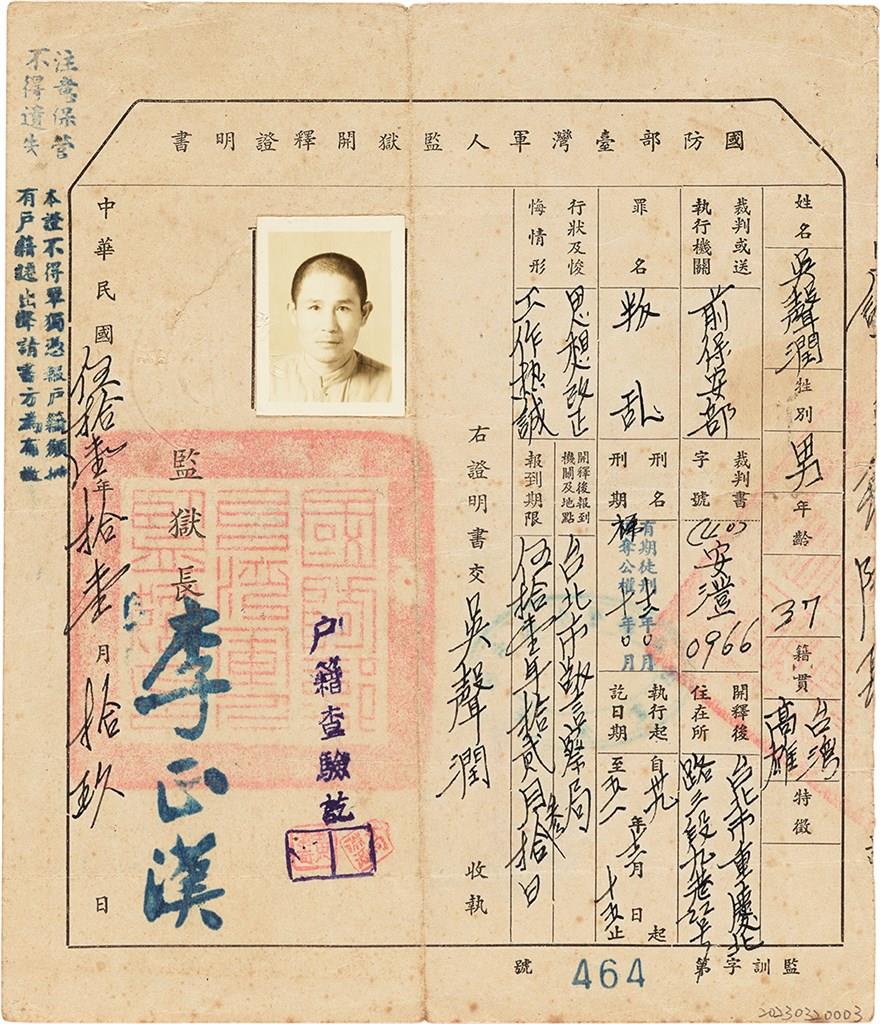 國防部臺灣軍人監獄開釋證明書
姓名 吳聲潤 性別 男 年齡 37 籍貫 台灣高雄 特徵
裁判或送執行機關 前保安部 裁判書字號 (40)安澄0966 開釋後住在所 台北市重慶北路三段九巷
罪名 叛乱 刑名刑期 有期徒刑十二年0月 褫奪公權十年0月 執行起訖日期 自卅年月日起至五一年十月十五止
行狀及悛悔情形 思想改正工作熱誠 開釋後報到機關及地點 台北市警察局 報到期限 伍拾壹年拾貳月拾日
右證明書交 吳聲潤 收執
監獄長 李正漢
戶籍查驗訖
中華民國伍拾壹年拾壹月拾玖日
監訓字第 464 號
注意保管
不得遺失
本證不得單獨憑報戶籍須
有戶籍遷出申請書方為有效
20230320003